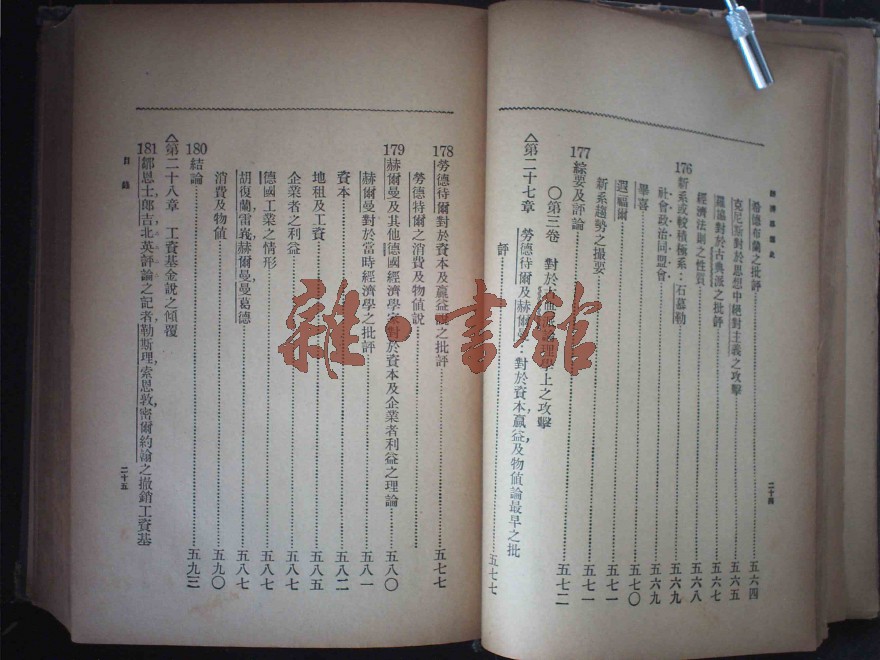 經濟思想史
希德布蘭之批評 五六四
克尼斯對於思想中絕對主義之攻擊 五六五
羅協對於古典派之批評 五六七
經濟法則之性質 五六八
176 新系或較積極系：石慕勒 五六九
社會政治同盟會 五六九
畢喜 五七〇
遐福爾 五七一
新系趨勢之撮要 五七一
177 綜要及評論 五七二
〇第三卷 對於 上之攻擊
△第二十七章 勞德待爾及赫爾曼：對於資本，贏益及物值論最早之批
評 五七七
二十四
178 勞德待爾對於資本及贏益 之批評 五七七
勞德特爾之消費及物值說
179 赫爾曼及其他德國經濟學家對於資本及企業者利益之理論 五八〇
赫爾曼對於當時經濟學之批評 五八一
資本 五八二
地租及工資 五八五
企業者之利益 五八七
德國工業之情形 五八七
胡復蘭，雷義，赫爾曼，曼葛德 五八七
消費及物值 五九〇
180 結論 五九三
△第二十八章 工資基金說之傾覆
181 鄒恩士，郎吉，北英評論之記者，勒斯理，索恩敦，密爾約翰之撤銷工資基
目錄
二十五
雜·書館